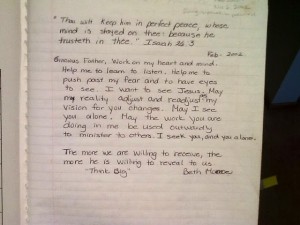 "Thou will keep him in perfect peace, whose
mind is stayed on thee: because he
trusteth in thee." Isaiah 26:3
Feb. 2002
Gracious Father, Work on my heart and mind.
Help me to learn to listen. Help me to
push past my fear and to have eyes
to see. I want to see Jesus. May
my reality adjust and readjust my
vision for you changes. May I see
you alone. May the work you are
doing in me be used outwardly
to minister to others. I seek you, and you alone.
The more we are willing to receive, the
more he is willing to reveal to us.
"Think Big" Beth